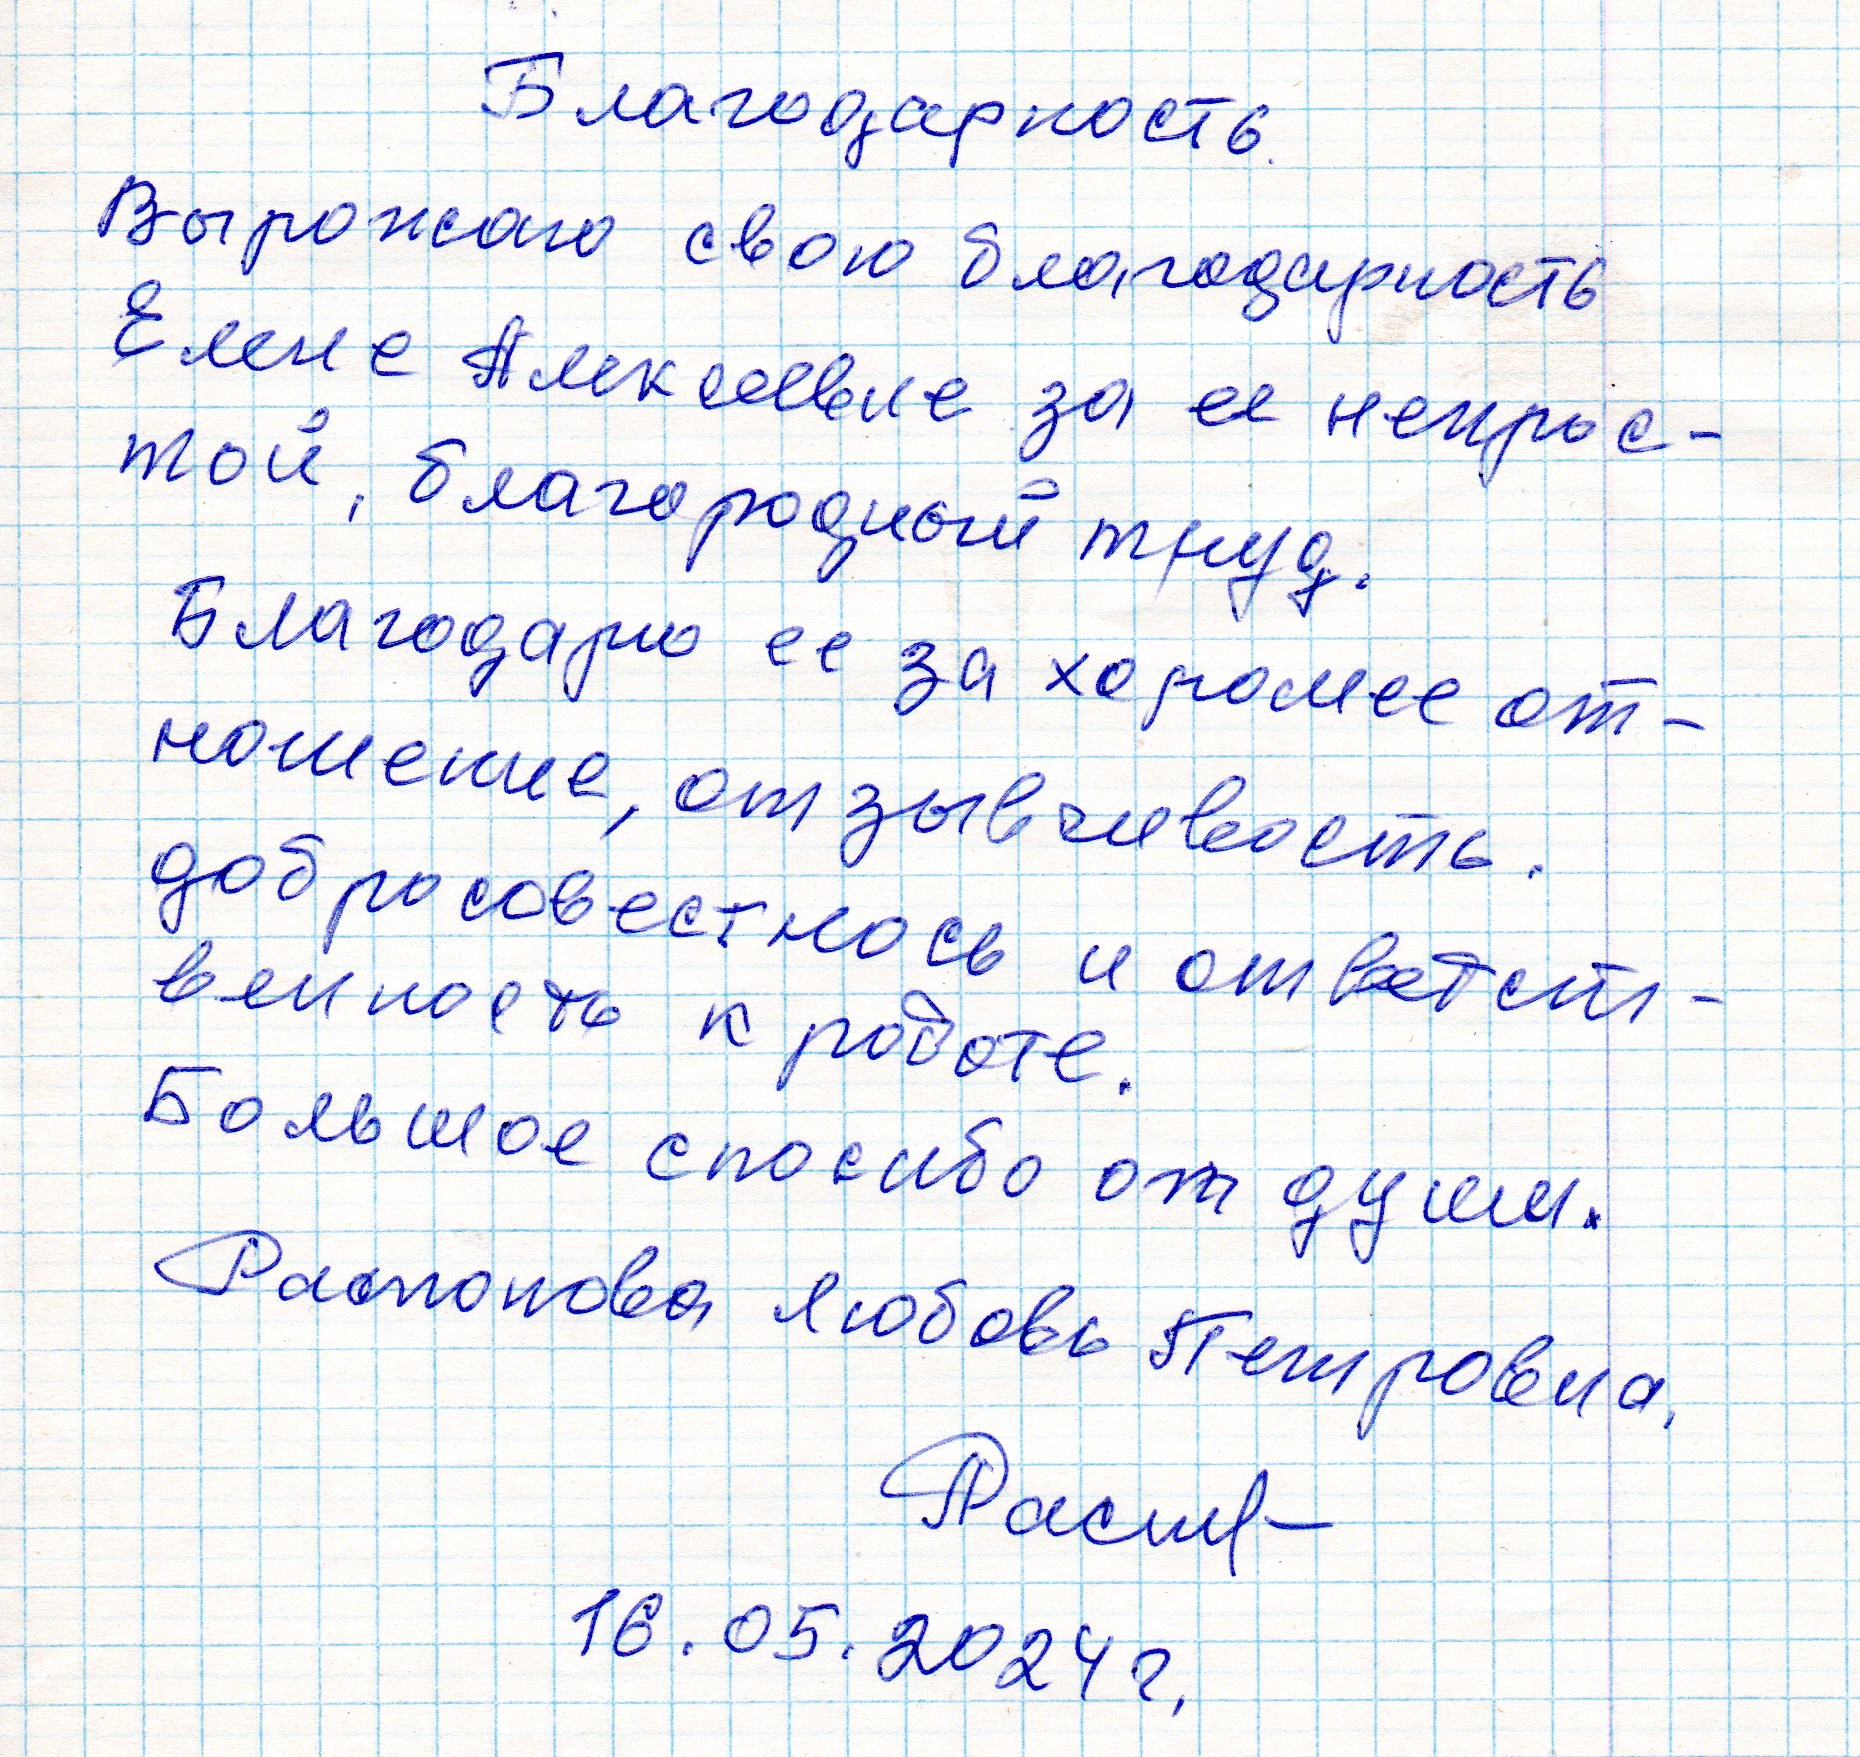 Благодарность.
Выражаю свою благодарность
Елене Алексеевне за ее непрос-
той, благородный труд.
Благодарю ее за хорошее от-
ношение, отзывчивость.
добросовестнось и ответст-
венность к работе.
Большое спасибо от души.
Распопова Любовь Петровна.
16.05.2024г.